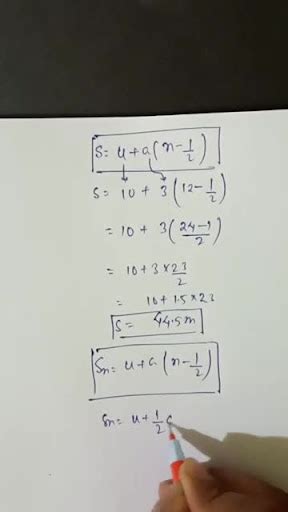 S = u + a (n - 1/2)
S = 10 + 3 (12 - 1/2)
= 10 + 3 (24-1/2)
= 10 + 3 × 23/2
= 10 + 1.5 × 23
S = 44.5 m
Sn = u + a (n - 1/2)
Sn = u + 1/2 a